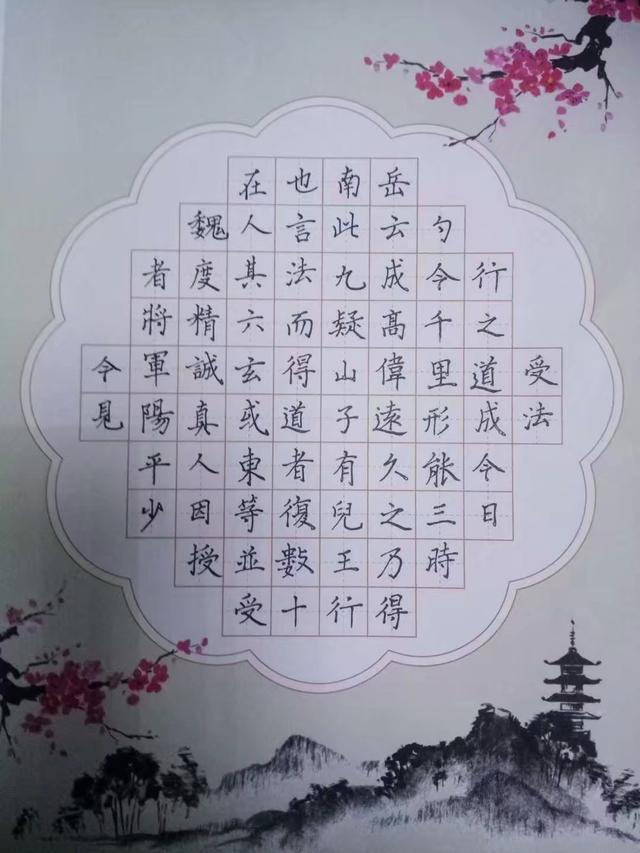 受法
行之道成今日
勺今千里形能三時
岳云成高偉遠久之乃得
南此九疑山子有兒王行
也言法而得道者復數十
在人其六玄或東等並受
魏度精誠真人因授
者將軍陽平少
今見